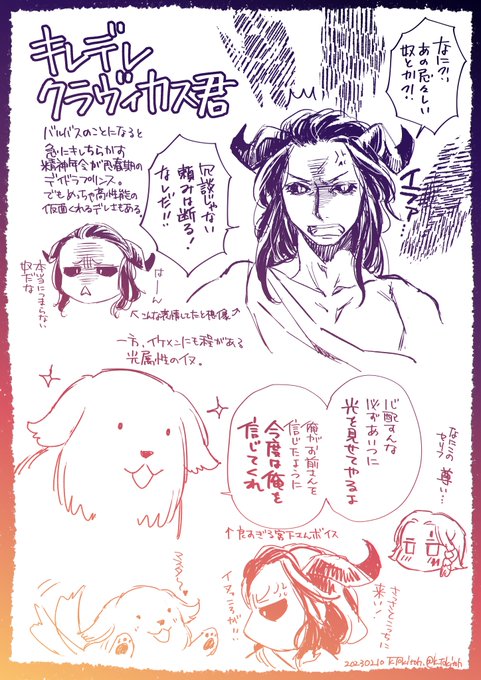 キレデレ
クラヴィカス君
バルバスのことになると
急にキレちらかす
精神年令が思春期の
デイドラプリンス。
でもめっちゃ高性能の
仮面くれるデレもある。
なに?!
あの忌々しい
奴とか?!
イラァ…
冗談じゃない
頼みは断る!
なしだ!!
はーん
本当につまらない
奴だな
↖こんな表情してたと想像↗
一方、イケメンにも程がある
光属性のイヌ。
心配すんな
必ずあいつに
光を見せてやるよ
俺がお前さんを
信じたように
今度は俺を
信じてくれ
なにこの
セリフ
尊い…
↑良すぎる宮下さんボイス
さっさとこっちに
来い!
イヌっころが!!
20230210 K.Takitoh. @k.Takitoh